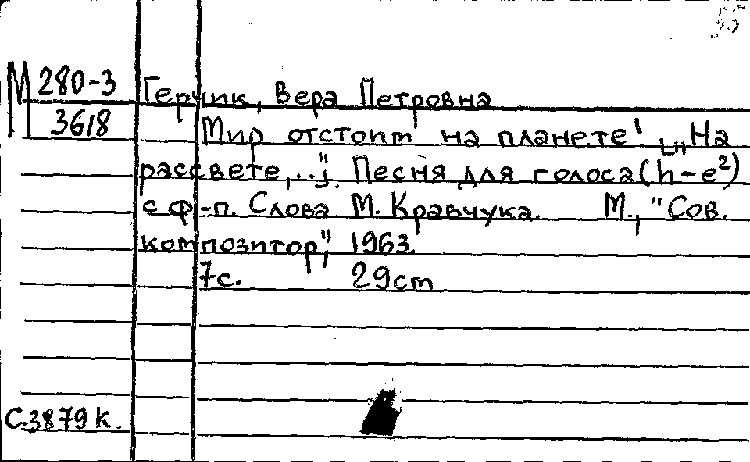 М 280-3
3618
Герчик, Вера Петровна
Мир отстоит на планете! ["На
рассвете,.."]. Песня для голоса (h-e²)
с ф.-п. Слова М. Кравчука. М., "Сов.
композитор", 1963.
7с. 29cm
С.3879к.